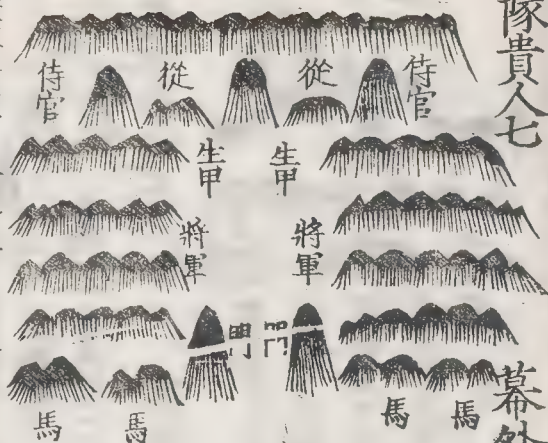 隊貴人七
幕外
侍官
從
從
侍官
生甲
生甲
將軍
將軍
門
門
馬
馬
馬
馬